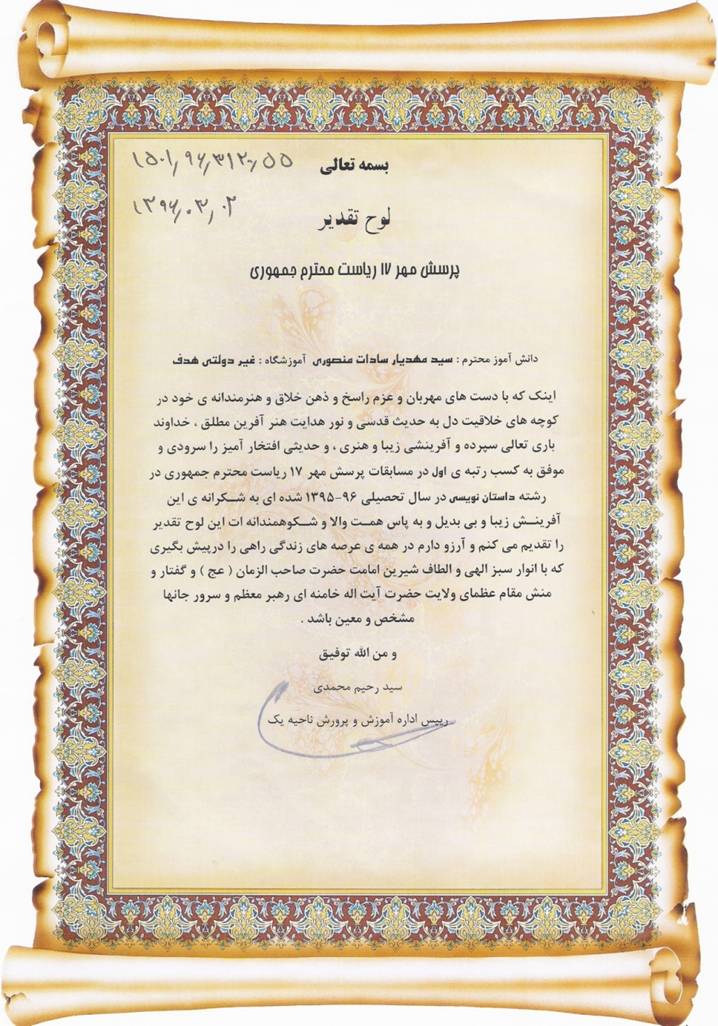 بسمه تعالی
۱۵۰۱٫۹۶٫۳۱۲۰٫۵۵
لوح تقدیر
۱۳۹۶٫۰۳٫۰۲
پرسش مهر ۱۷ ریاست محترم جمهوری
دانش آموز محترم : سید مهدیار سادات منصوری آموزشگاه : غیر دولتی هدف
اینک که با دست های مهربان و عزم راسخ و ذهن خلاق و هنرمندانه ی خود در
کوچه های خلاقیت دل به حدیث قدسی و نور هدایت هنر آفرین مطلق ، خداوند
باری تعالی سپرده و آفرینشی زیبا و هنری ، و حدیثی افتخار آمیز را سرودی و
موفق به کسب رتبه ی اول در مسابقات پرسش مهر ۱۷ ریاست محترم جمهوری در
رشته داستان نویسی در سال تحصیلی ۹۶-۱۳۹۵ شده ای به شکرانه ی این
آفرینش زیبا و بی بدیل و به پاس همت والا و شکوهمندانه ات این لوح تقدیر
را تقدیم می کنم و آرزو دارم در همه ی عرصه های زندگی راهی را درپیش بگیری
که با انوار سبز الهی و الطاف شیرین امامت حضرت صاحب الزمان ( عج ) و گفتار و
منش مقام عظمای ولایت حضرت آیت اله خامنه ای رهبر معظم و سرور جانها
مشخص و معین باشد .
و من الله توفیق
سید رحیم محمدی
رییس اداره آموزش و پرورش ناحیه یک